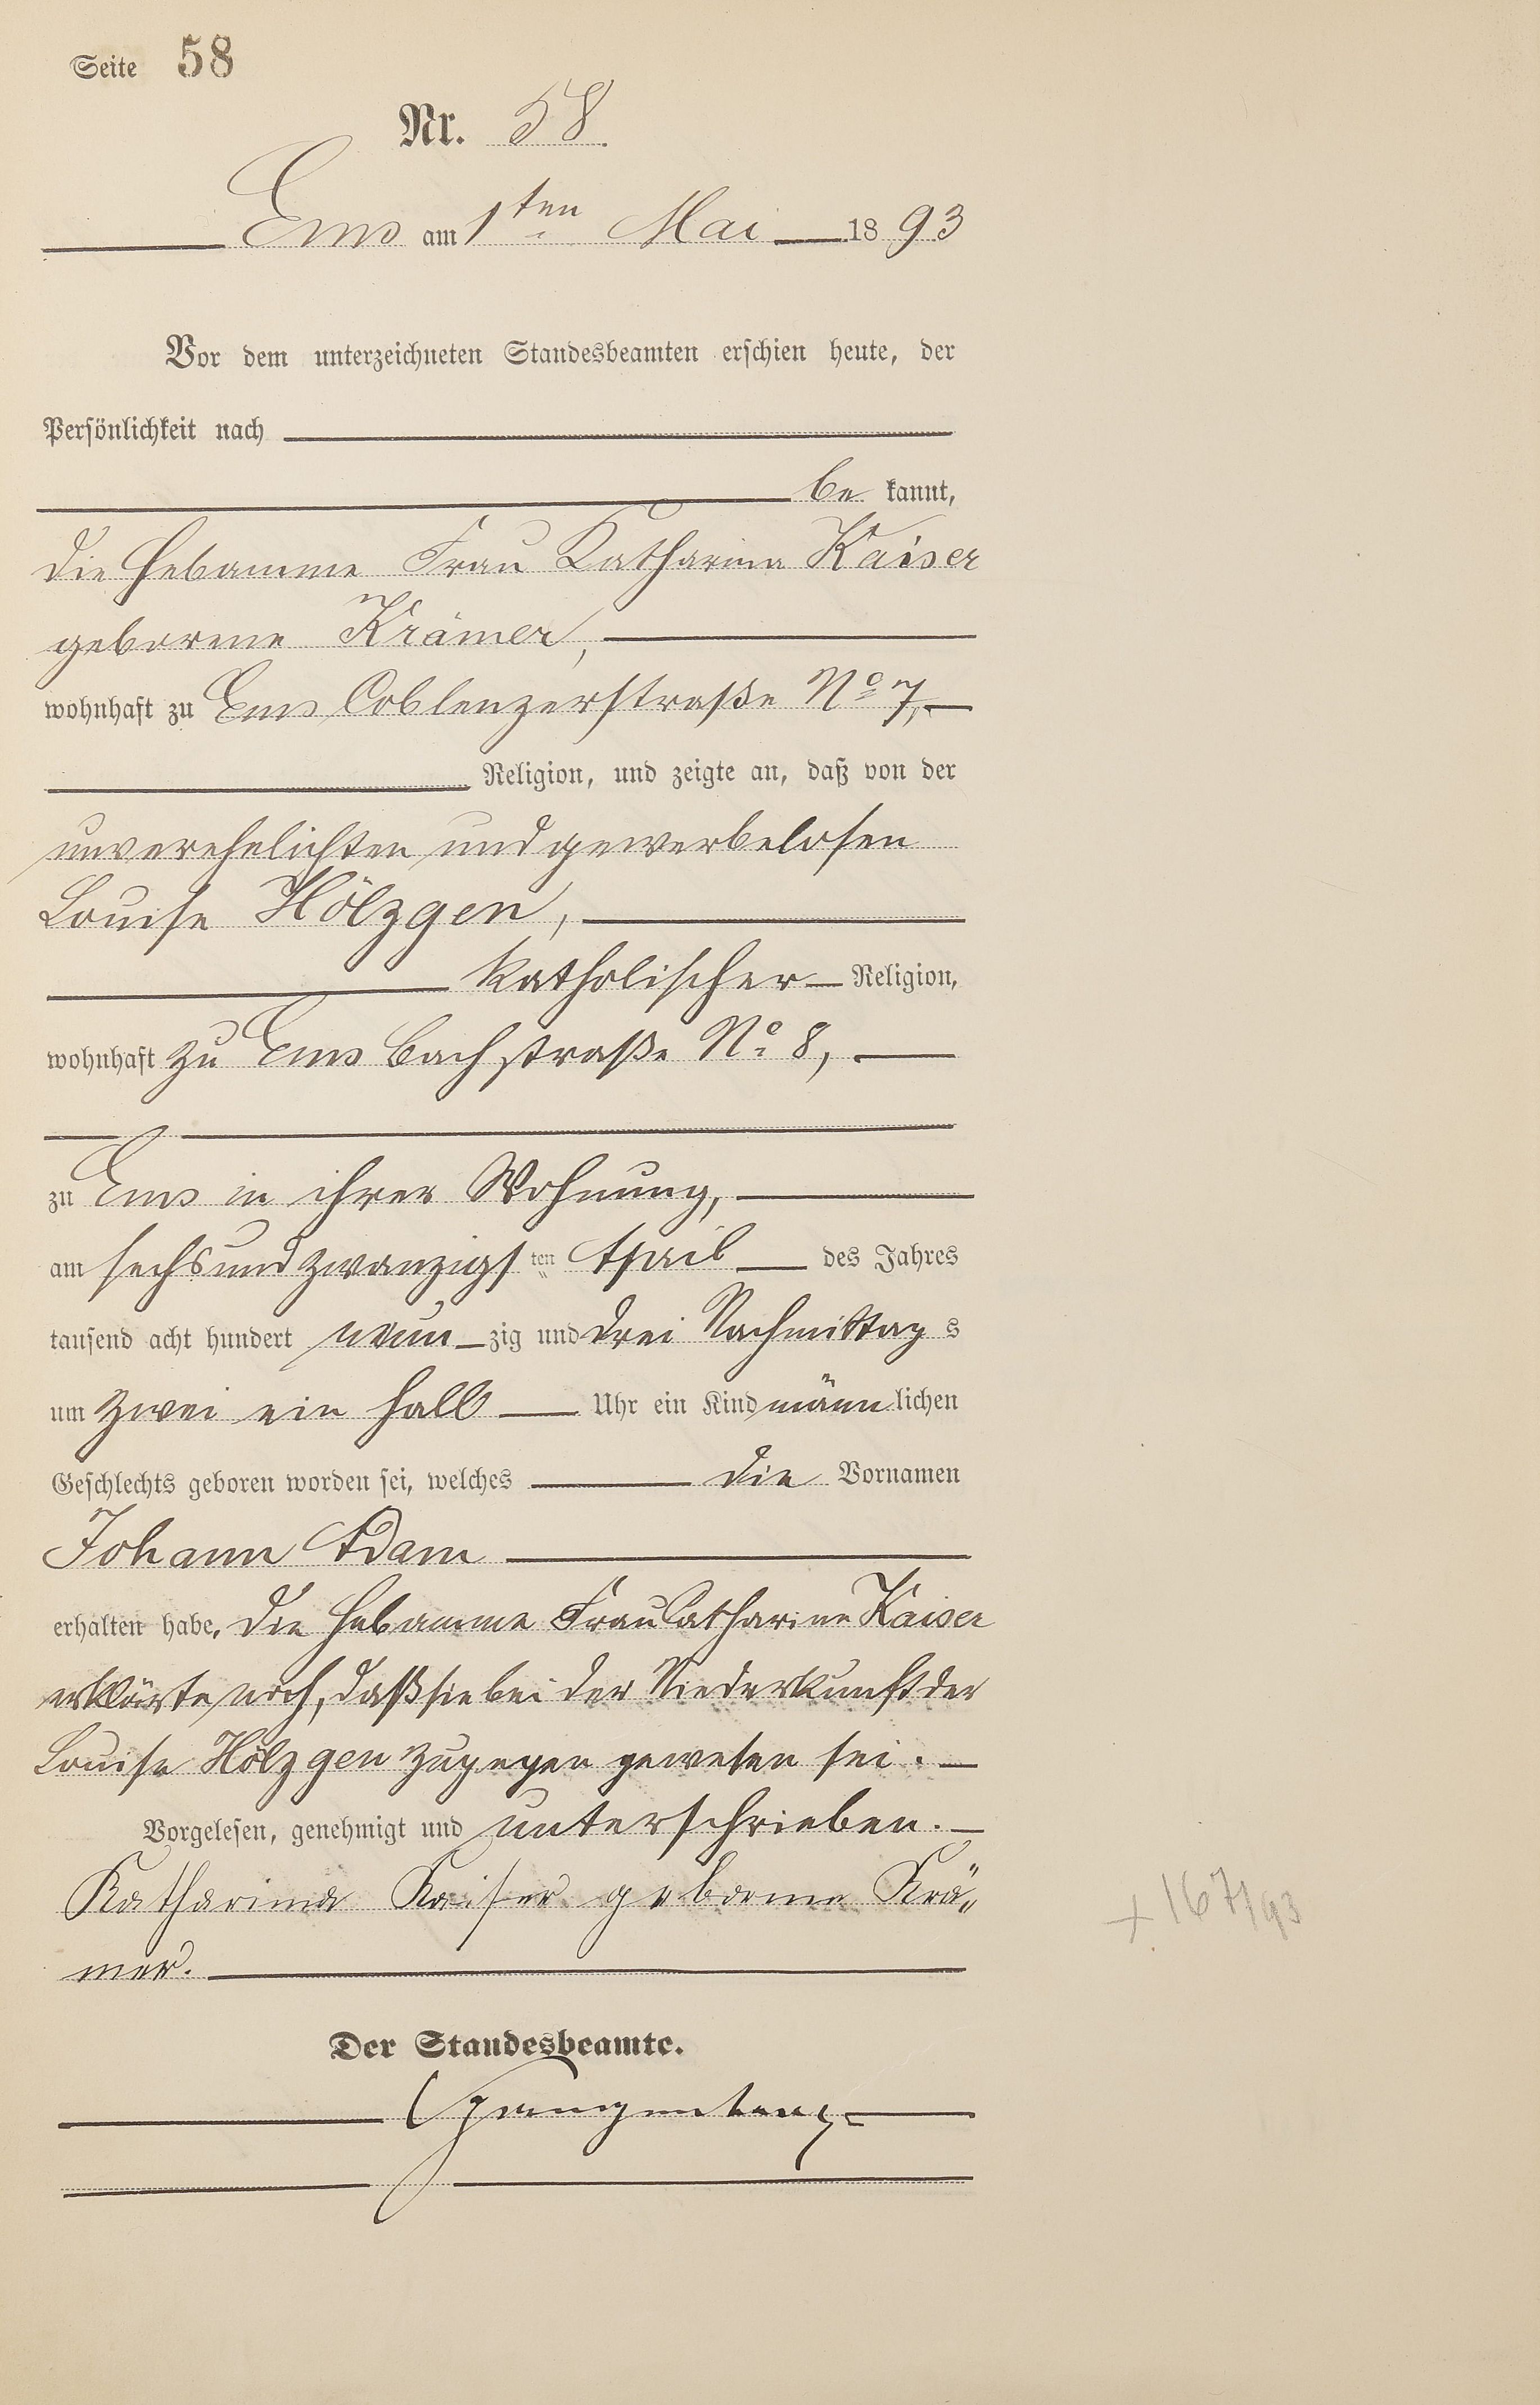 Seite 58
Nr. 58.
Ems am 1ten Mai 1893
Vor dem unterzeichneten Standesbeamten erschien heute, der
Persönlichkeit nach
be kannt,
die Hebamme Frau Katharina Kaiser
geborene Krämer,
wohnhaft zu Ems Coblenzerstraße No 7,
Religion, und zeigte an, daß von der
unverehelichten und gewerbelosen
Louise Hölzgen,
katholischer Religion,
wohnhaft zu Ems Bachstraße No 8,
zu Ems in ihrer Wohnung,
am sechsundzwanzigsten April des Jahres
tausend acht hundert neunzig und drei Nachmittags
um zwei ein halb Uhr ein Kind männlichen
Geschlechts geboren worden sei, welches die Vornamen
Johann Adam
erhalten habe. Die Hebamme Frau Catharina Kaiser
erklärte noch, daß sie bei der Niederkunft der
Louise Hölzgen zugegen gewesen sei.
Vorgelesen, genehmigt und unterschrieben.
Katharina Kaiser geborene Krä„
mer.
+ 167/93
Der Standesbeamte.